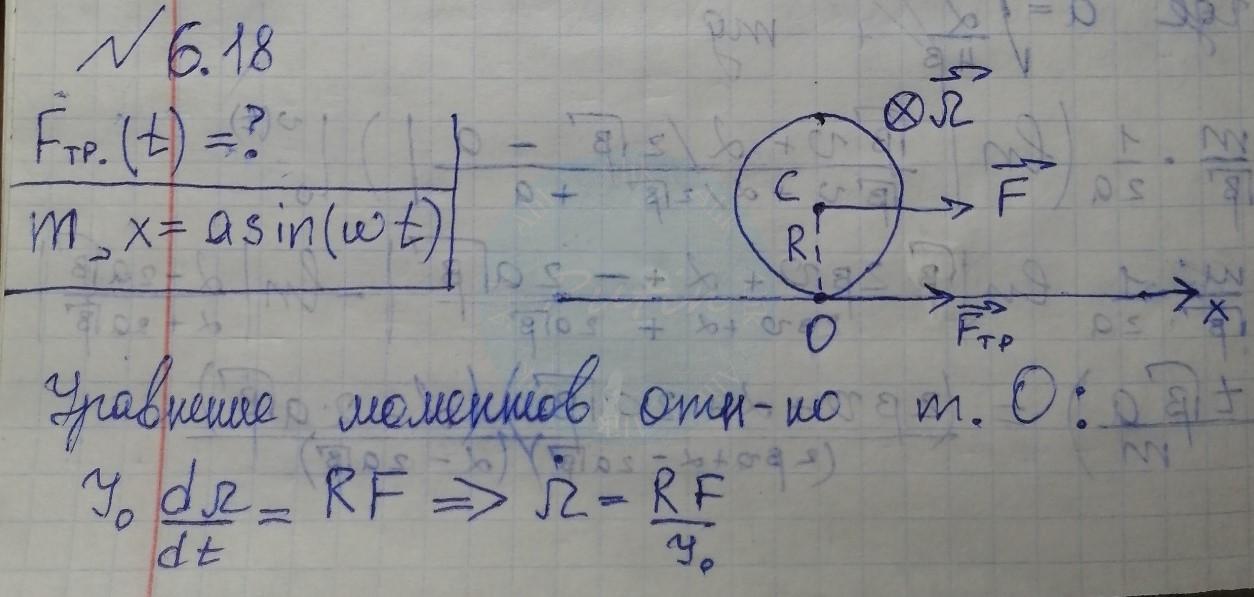 № 6.18
Fтр.(t) = ?
m, x = a sin(ωt)
Ω
C
F
R
O
Fтр
x
Уравнение моментов отн-но т. O:
J₀ dΩ/dt = RF => Ω̇ = RF/J₀